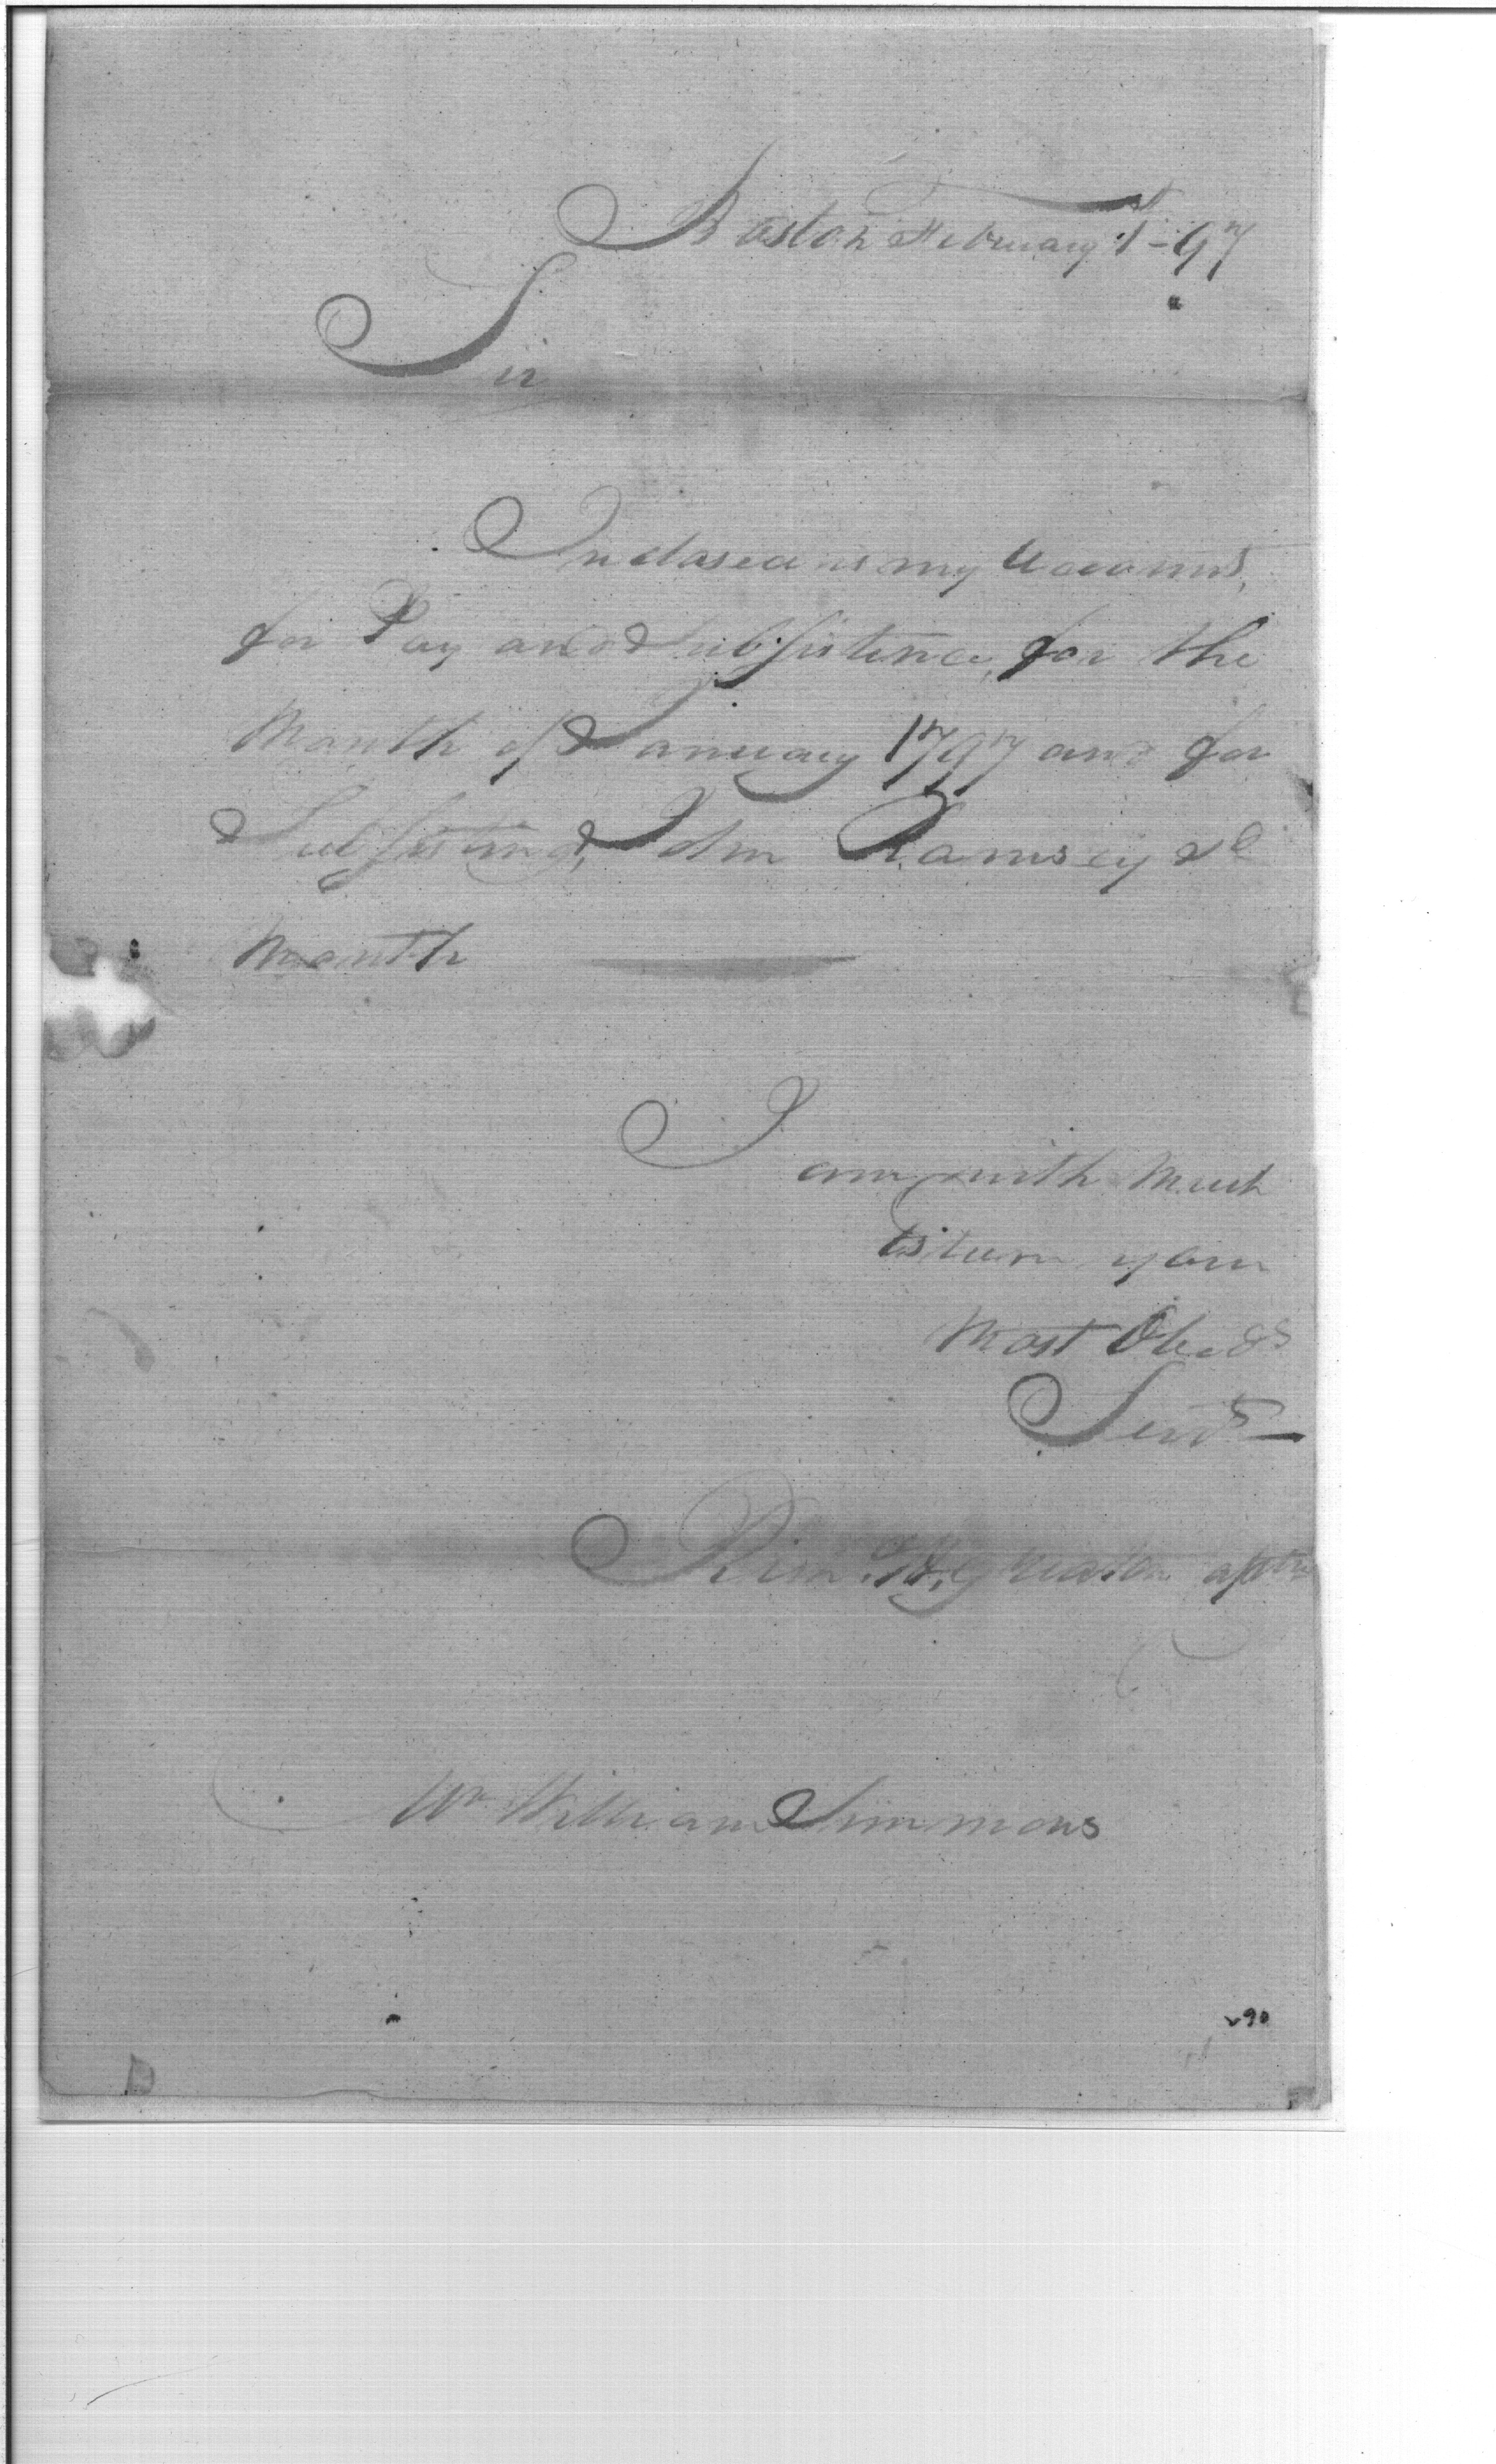 Boston February 1st - 97
Sir
Inclosed is my Accounts,
for Pay and Subsistence, for the
Month of January 1797 and for
Subsisting, Jn Ramsey sd
Month
I
am with Much
Esteem your
Most Obedt
Servt
Mr William Simmons
290